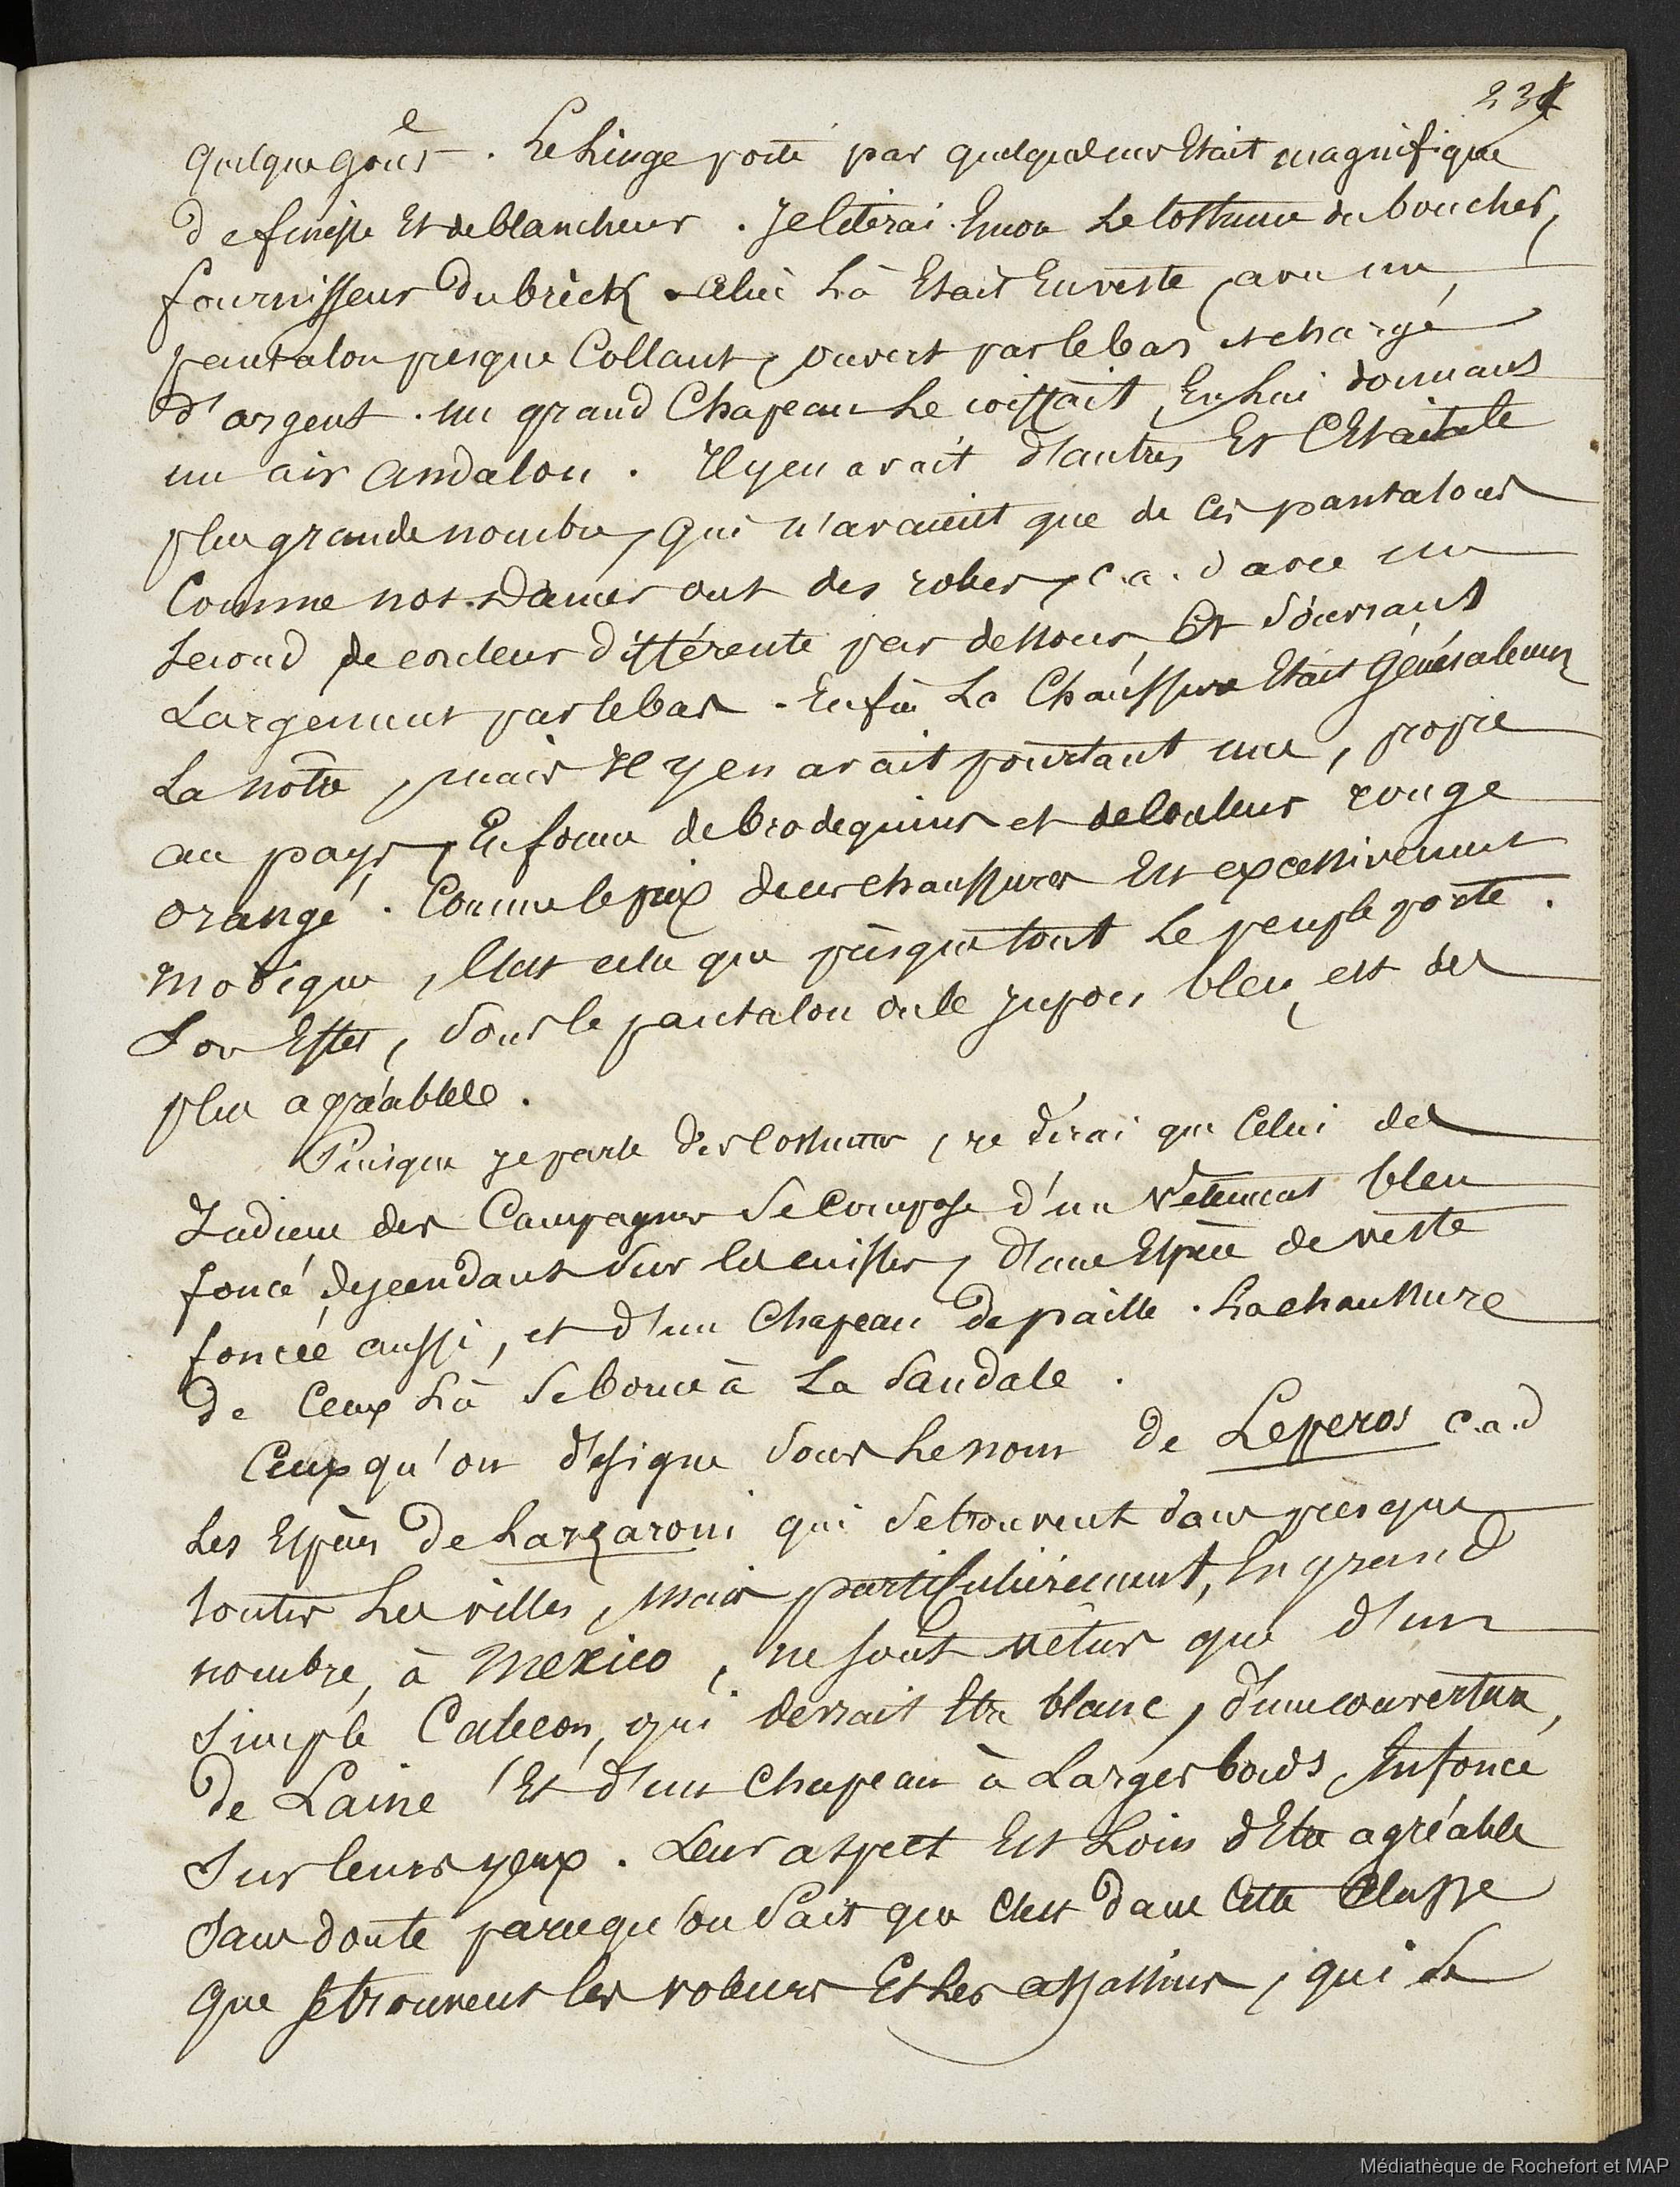 231
quelque goût. Le Linge porté par quelques uns Etait magnifique
de finesse Et de blancheur. Je citerai Encor Le Costume du boucher,
fournisseur du brick. Celui Là Etait En veste, avec un
pantalon presque Collant, ouvert par le bas et chargé
d'argent. un grand Chapeau Le coiffait, En Lui donnant
un air Andalou. Il y en avait d'autres, Et C'Etait le
plus grande nombre, qui n'avaient que de ces pantalons
Comme nos Dames ont des robes, c.a.d avec un
Second de couleur différente par dessous, Et s'ouvrant
Largement par le bas. Enfin La Chaussure Etait Généralement
La notre, mais Il y en avait pourtant une, propre
au pays, En forme de brodequins et de Couleur rouge
orangé. Comme le prix de ces chaussures Est excessivement
modique, C'est celle que presque tout Le peuple porte.
Son Effet, sous le pantalon ou le Jupon bleu, est des
plus agréablele.
Puisque je parle des Costumes, je dirai que Celui des
Indiens des Campagnes Se Compose d'un Vêtement bleu
foncé descendant sur les cuisses, d'une Espèce de veste
foncée aussi, et d'un Chapeau de paille. La chaussure
de Ceux Là Se borne à La Sandale.
Ceux qu'on désigne Sous Le nom de Leperos c.a.d
Les Espèces de Lazzaroni qui Se trouvent dans presque
toutes Les villes, mais particulièrement, En grand
nombre, à Mexico, ne sont vêtus que d'un
Simple Caleçon, qui devrait Etre blanc, d'une couverture,
de Laine Et d'un Chapeau à Larges bords, Enfoncé
Sur leurs yeux. Leur aspect Est Loin d'Etre agréable
Sans doute parcequ'on Sait que C'est dans Cette Classe
que se trouvent les voleurs Et Les assassins, qui se
Médiathèque de Rochefort et MAP